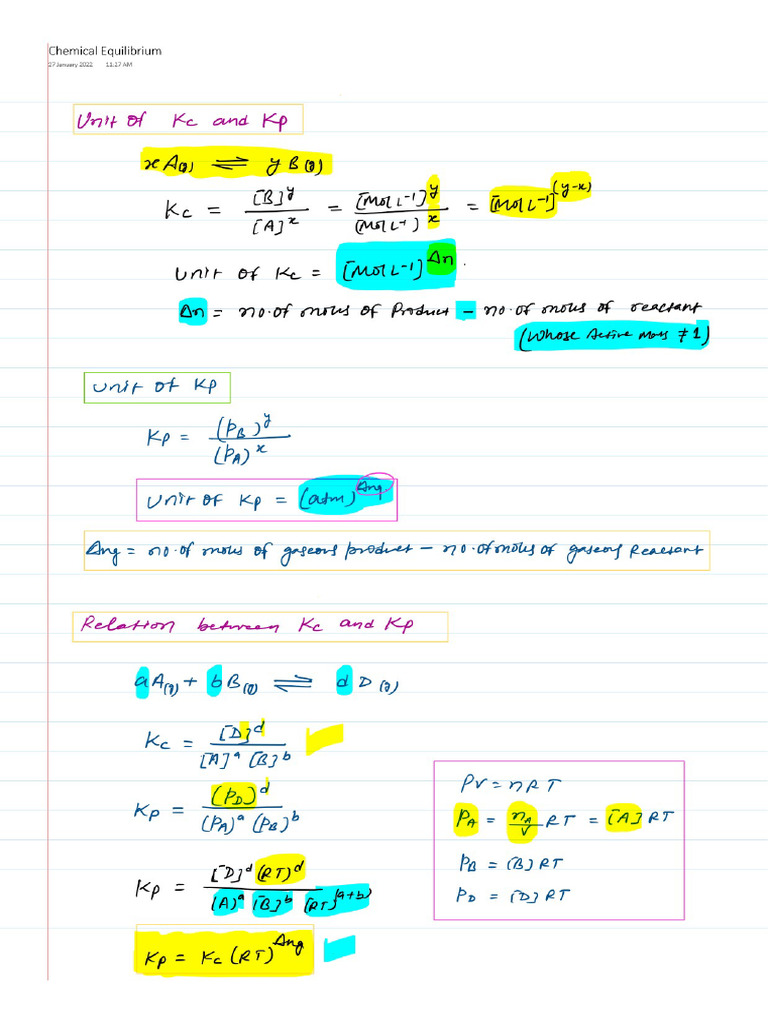 Chemical Equilibrium
27 January 2022 11:27 AM
Unit of Kc and Kp
xA(g) ⇌ yB(g)
Kc = [B]^y / [A]^x = [Mol L-1]^y / (Mol L-1)^x = [Mol L-1]^(y-x)
Unit of Kc = [Mol L-1]^Δn.
Δn = no. of moles of Product - no. of moles of reactant
(Whose Active Mass ≠ 1)
Unit of Kp
Kp = (PB)^y / (PA)^x
Unit of Kp = (atm)^Δng
Δng = no. of moles of gaseous product - no. of moles of gaseous Reactant
Relation between Kc and Kp
aA(g) + bB(g) ⇌ dD(g)
Kc = [D]^d / [A]^a [B]^b
Kp = (PD)^d / (PA)^a (PB)^b
Kp = [D]^d (RT)^d / (A)^a [B]^b [RT]^(a+b)
Kp = Kc (RT)^Δng
PV = nRT
PA = nA/V RT = [A] RT
PB = [B] RT
PD = [D] RT